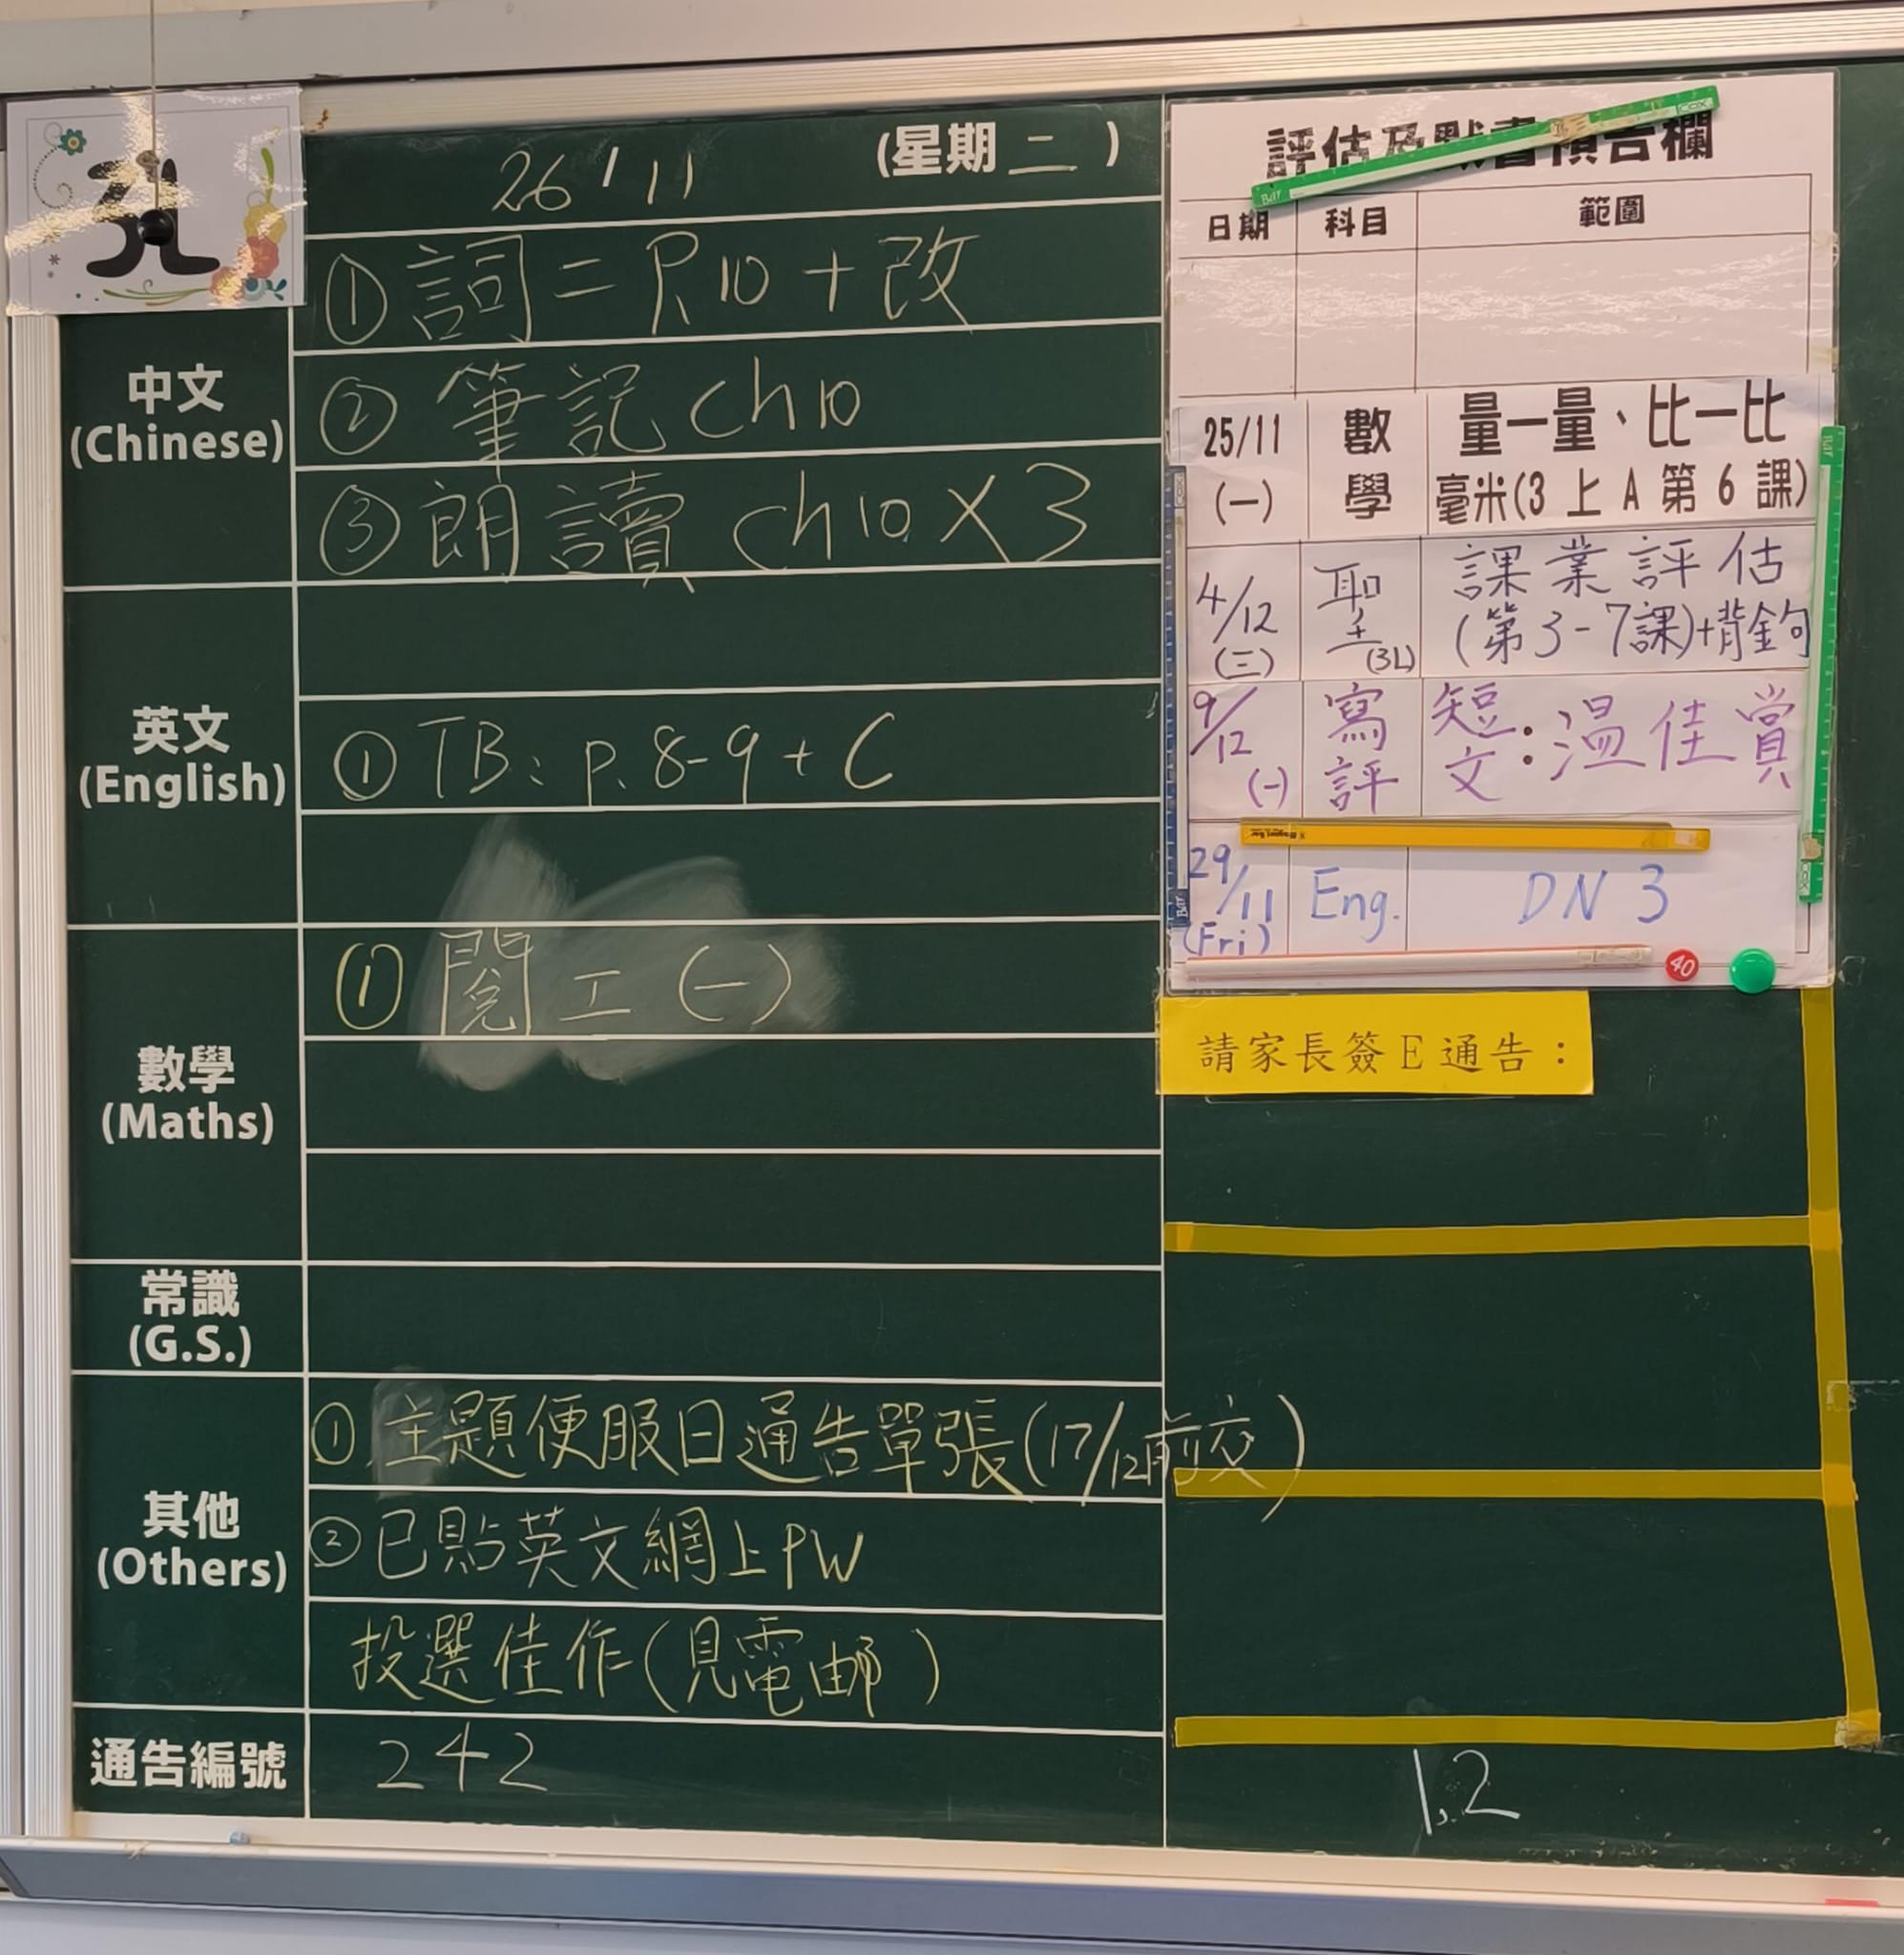 26/11 (星期二)
中文
(Chinese)
①詞二P.10+改
②筆記 ch10
③朗讀 ch10 X 3
英文
(English)
① TB: p. 8-9 + C
數學
(Maths)
① 閱工(一)
常識
(G.S.)
其他
(Others)
①主題便服日通告單張(17/12前交)
②已貼英文網上PW
投選佳作(見電郵)
通告編號
242
評估及默書預告欄
日期 科目 範圍
25/11 (一) 數學 量一量、比一比
毫米(3上A第6課)
4/12 (三) 聖 (3L) 課業評估
(第3-7課)+背金句
9/12 (一) 寫評 短文:溫佳賞
29/11 (Fri) Eng. DN 3
40
請家長簽E通告:
1.2